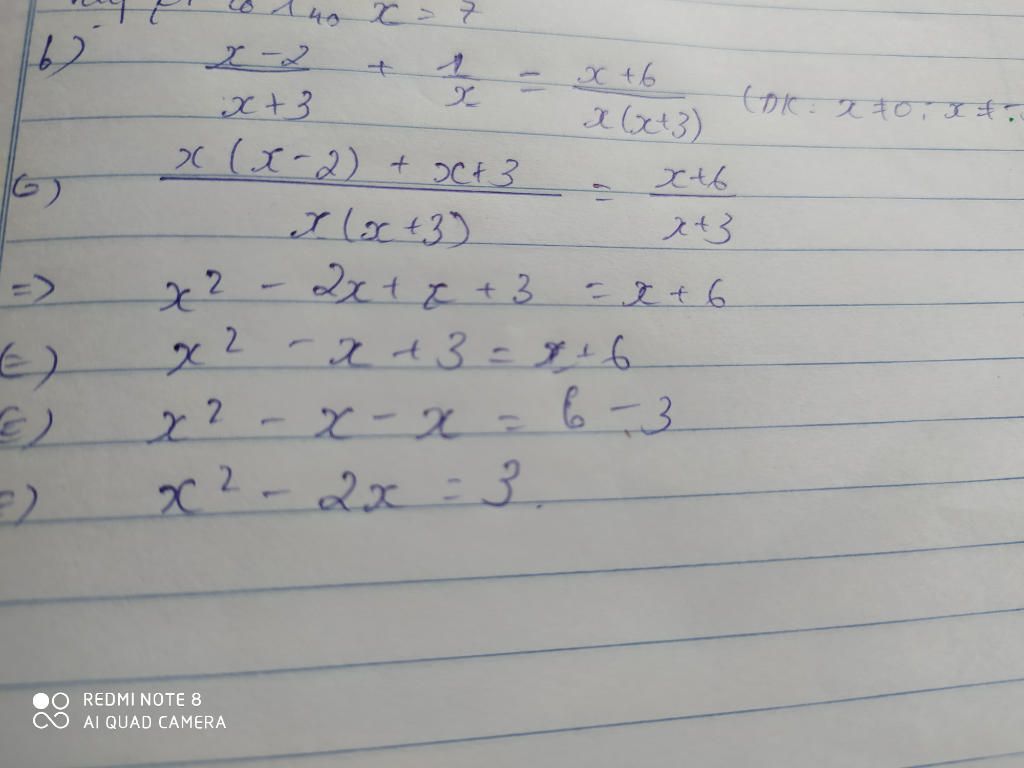 x = 7
b) x - 2 / x + 3 + 1 / x = x + 6 / x(x+3) (ĐK: x ≠ 0; x ≠ -
(=) x(x-2) + x+3 / x(x+3) = x+6 / x+3
=> x² - 2x + x + 3 = x + 6
(=) x² - x + 3 = x + 6
(=) x² - x - x = 6 - 3
=) x² - 2x = 3.
REDMI NOTE 8
AI QUAD CAMERA